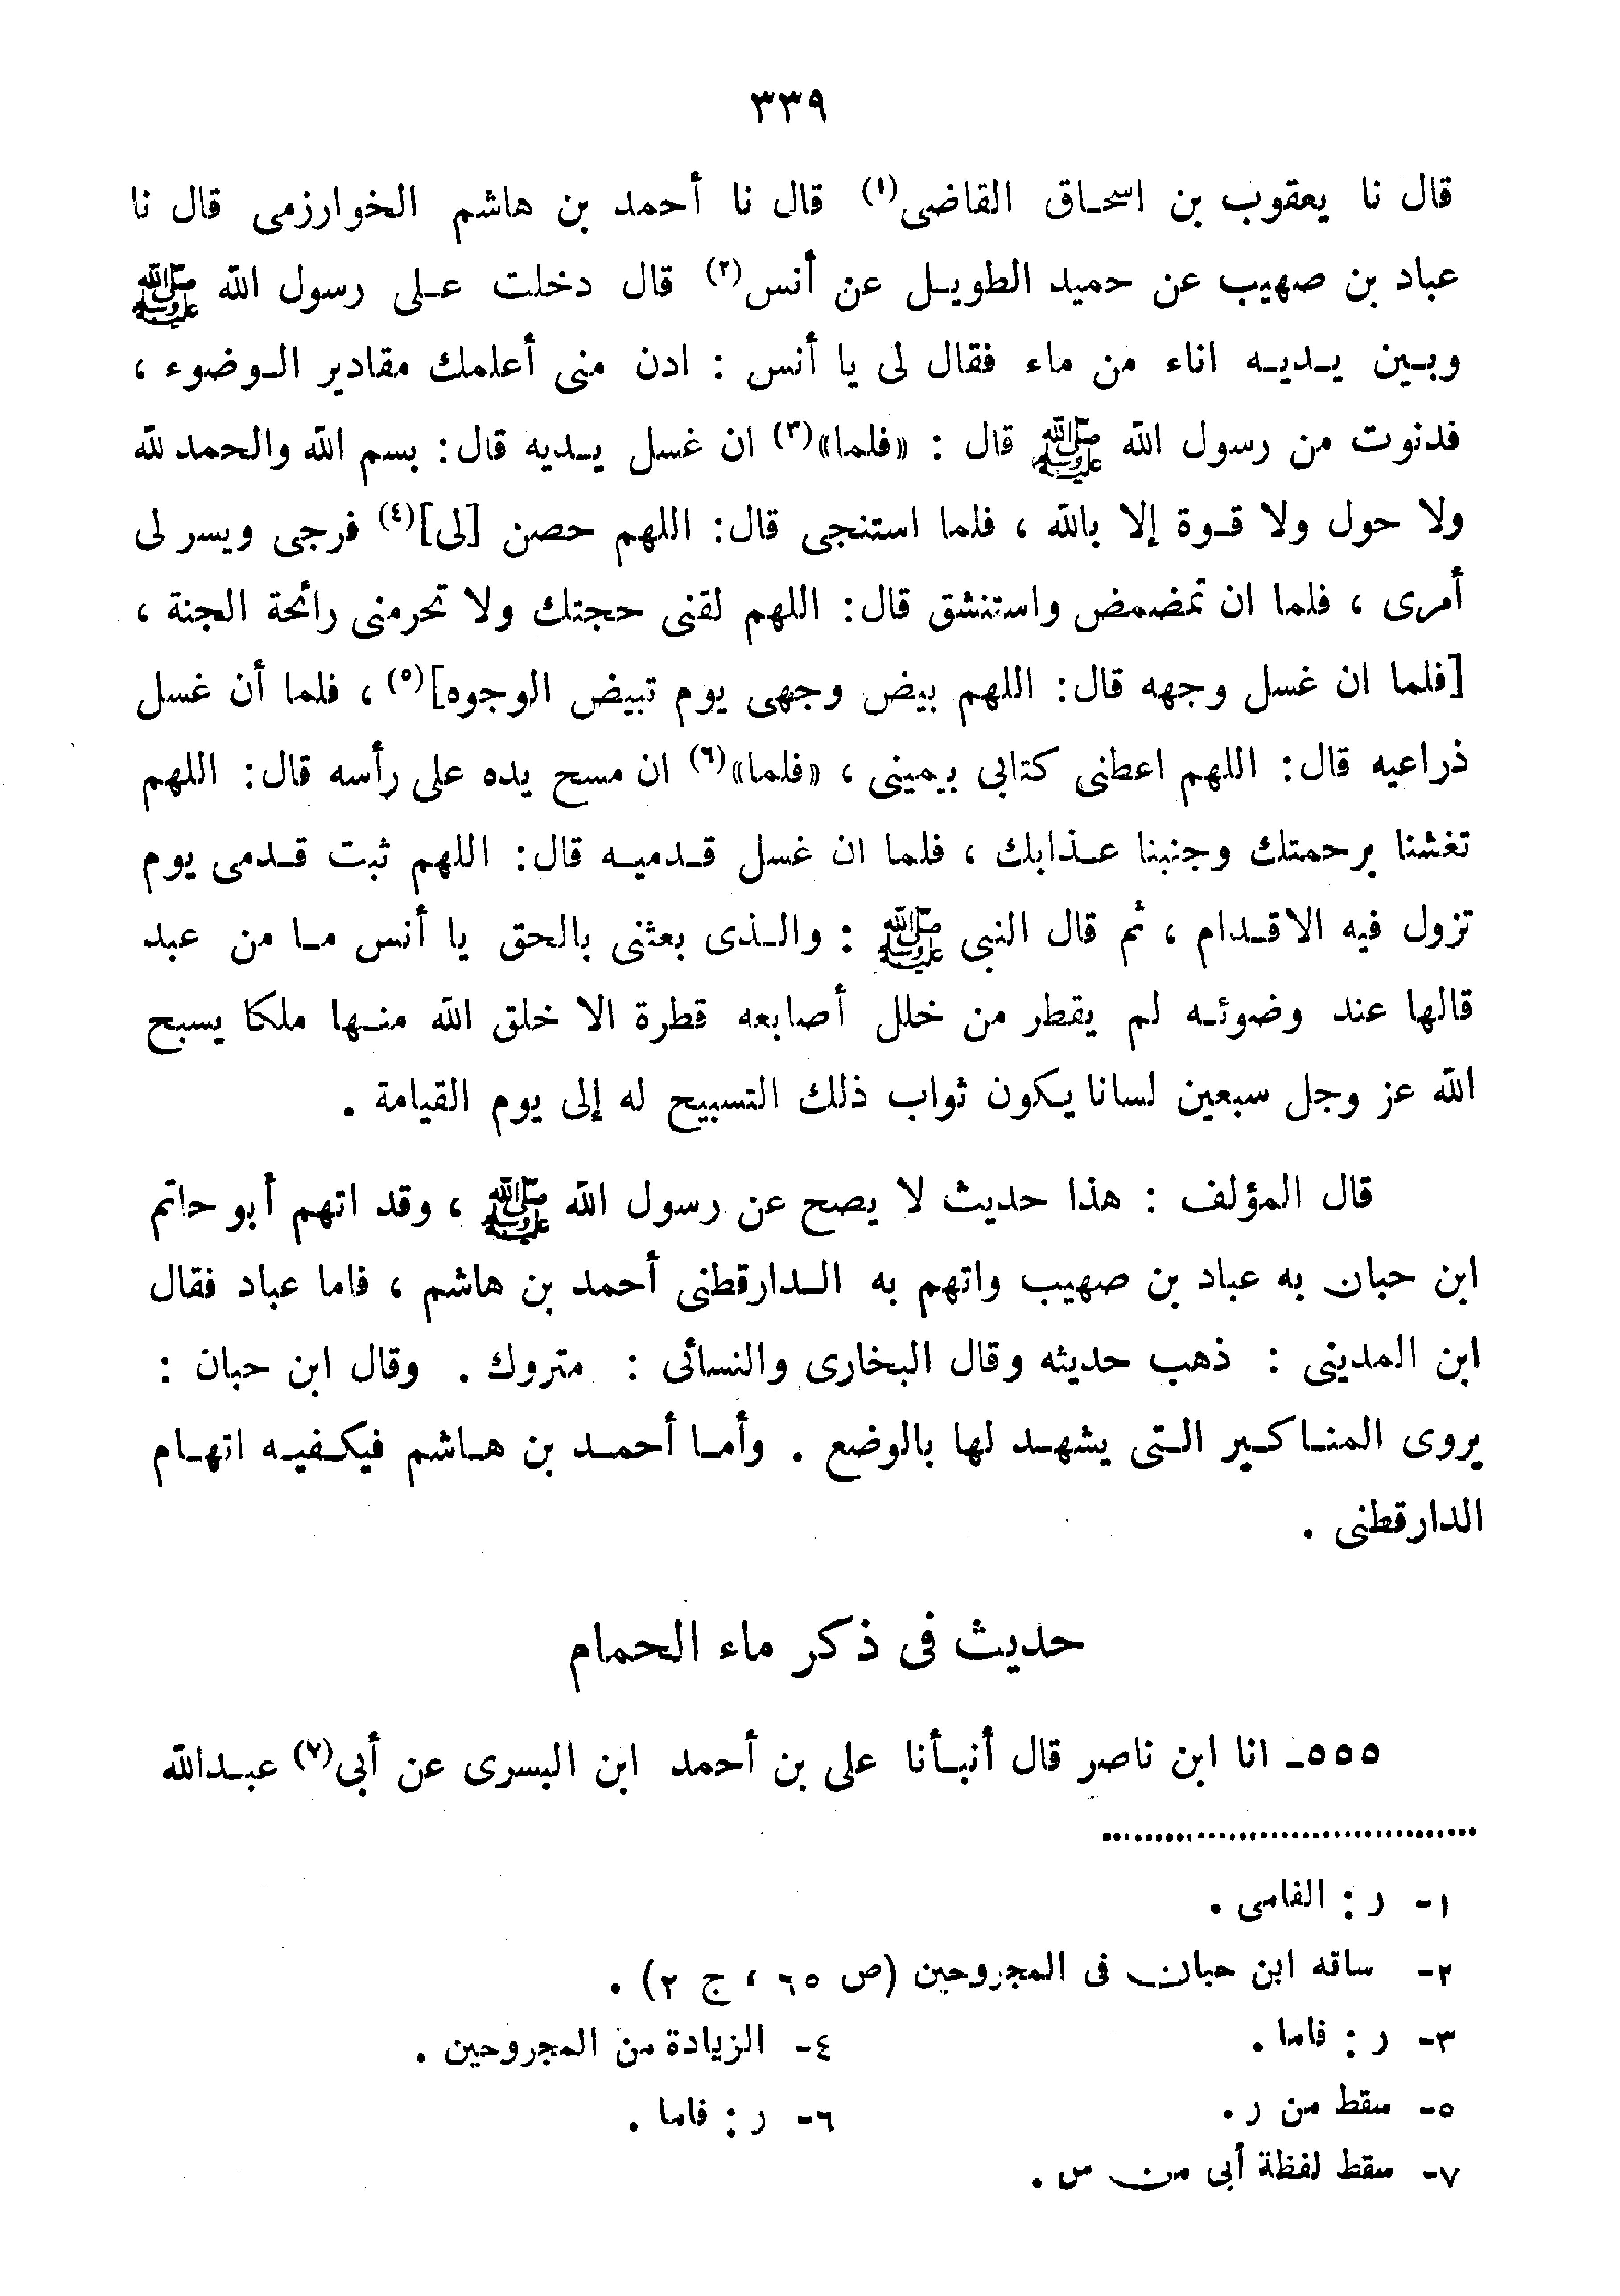 ٣٣٩
قال نا يعقوب بن اسحاق القاضى(١) قال نا أحمد بن هاشم الخوارزمى قال نا
عباد بن صهيب عن حميد الطويل عن أنس(٢) قال دخلت على رسول الله ﷺ
وبين يديه اناء من ماء فقال لى يا أنس : ادن منى أعلمك مقادير الوضوء ،
فدنوت من رسول الله ﷺ قال : «فلما»(٣) ان غسل يديه قال: بسم الله والحمد لله
ولا حول ولا قوة إلا بالله ، فلما استنجى قال: اللهم حصن [لى](٤) فرجى ويسر لى
أمرى ، فلما ان تمضمض واستنشق قال: اللهم لقنى حجتك ولا تحرمنى رائحة الجنة ،
[فلما ان غسل وجهه قال: اللهم بيض وجهى يوم تبيض الوجوه](٥) ، فلما أن غسل
ذراعيه قال: اللهم اعطنى كتابى بيمينى ، «فلما»(٦) ان مسح يده على رأسه قال: اللهم
تغشنا برحمتك وجنبنا عذابك ، فلما ان غسل قدميه قال: اللهم ثبت قدمى يوم
تزول فيه الاقدام ، ثم قال النبى ﷺ : والذى بعثنى بالحق يا أنس ما من عبد
قالها عند وضوئه لم يقطر من خلل أصابعه قطرة الا خلق الله منها ملكا يسبح
الله عز وجل سبعين لسانا يكون ثواب ذلك التسبيح له إلى يوم القيامة .
قال المؤلف : هذا حديث لا يصح عن رسول الله ﷺ ، وقد اتهم أبو حاتم
ابن حبان به عباد بن صهيب واتهم به الدارقطنى أحمد بن هاشم ، فاما عباد فقال
ابن المدينى : ذهب حديثه وقال البخارى والنسائى : متروك . وقال ابن حبان :
يروى المناكير التى يشهد لها بالوضع . وأما أحمد بن هاشم فيكفيه اتهام
الدارقطنى .
حديث فى ذكر ماء الحمام
٥٥٥ـ انا ابن ناصر قال أنبأنا على بن أحمد ابن البسرى عن أبى(٧) عبدالله
١- ر : الفامى .
٢- ساقه ابن حبان فى المجروحين (ص ٦٥ ، ج ٢) .
٣- ر : فاما .
٤- الزيادة من المجروحين .
٥- سقط من ر .
٦- ر : فاما .
٧- سقط لفظة أبى من س .